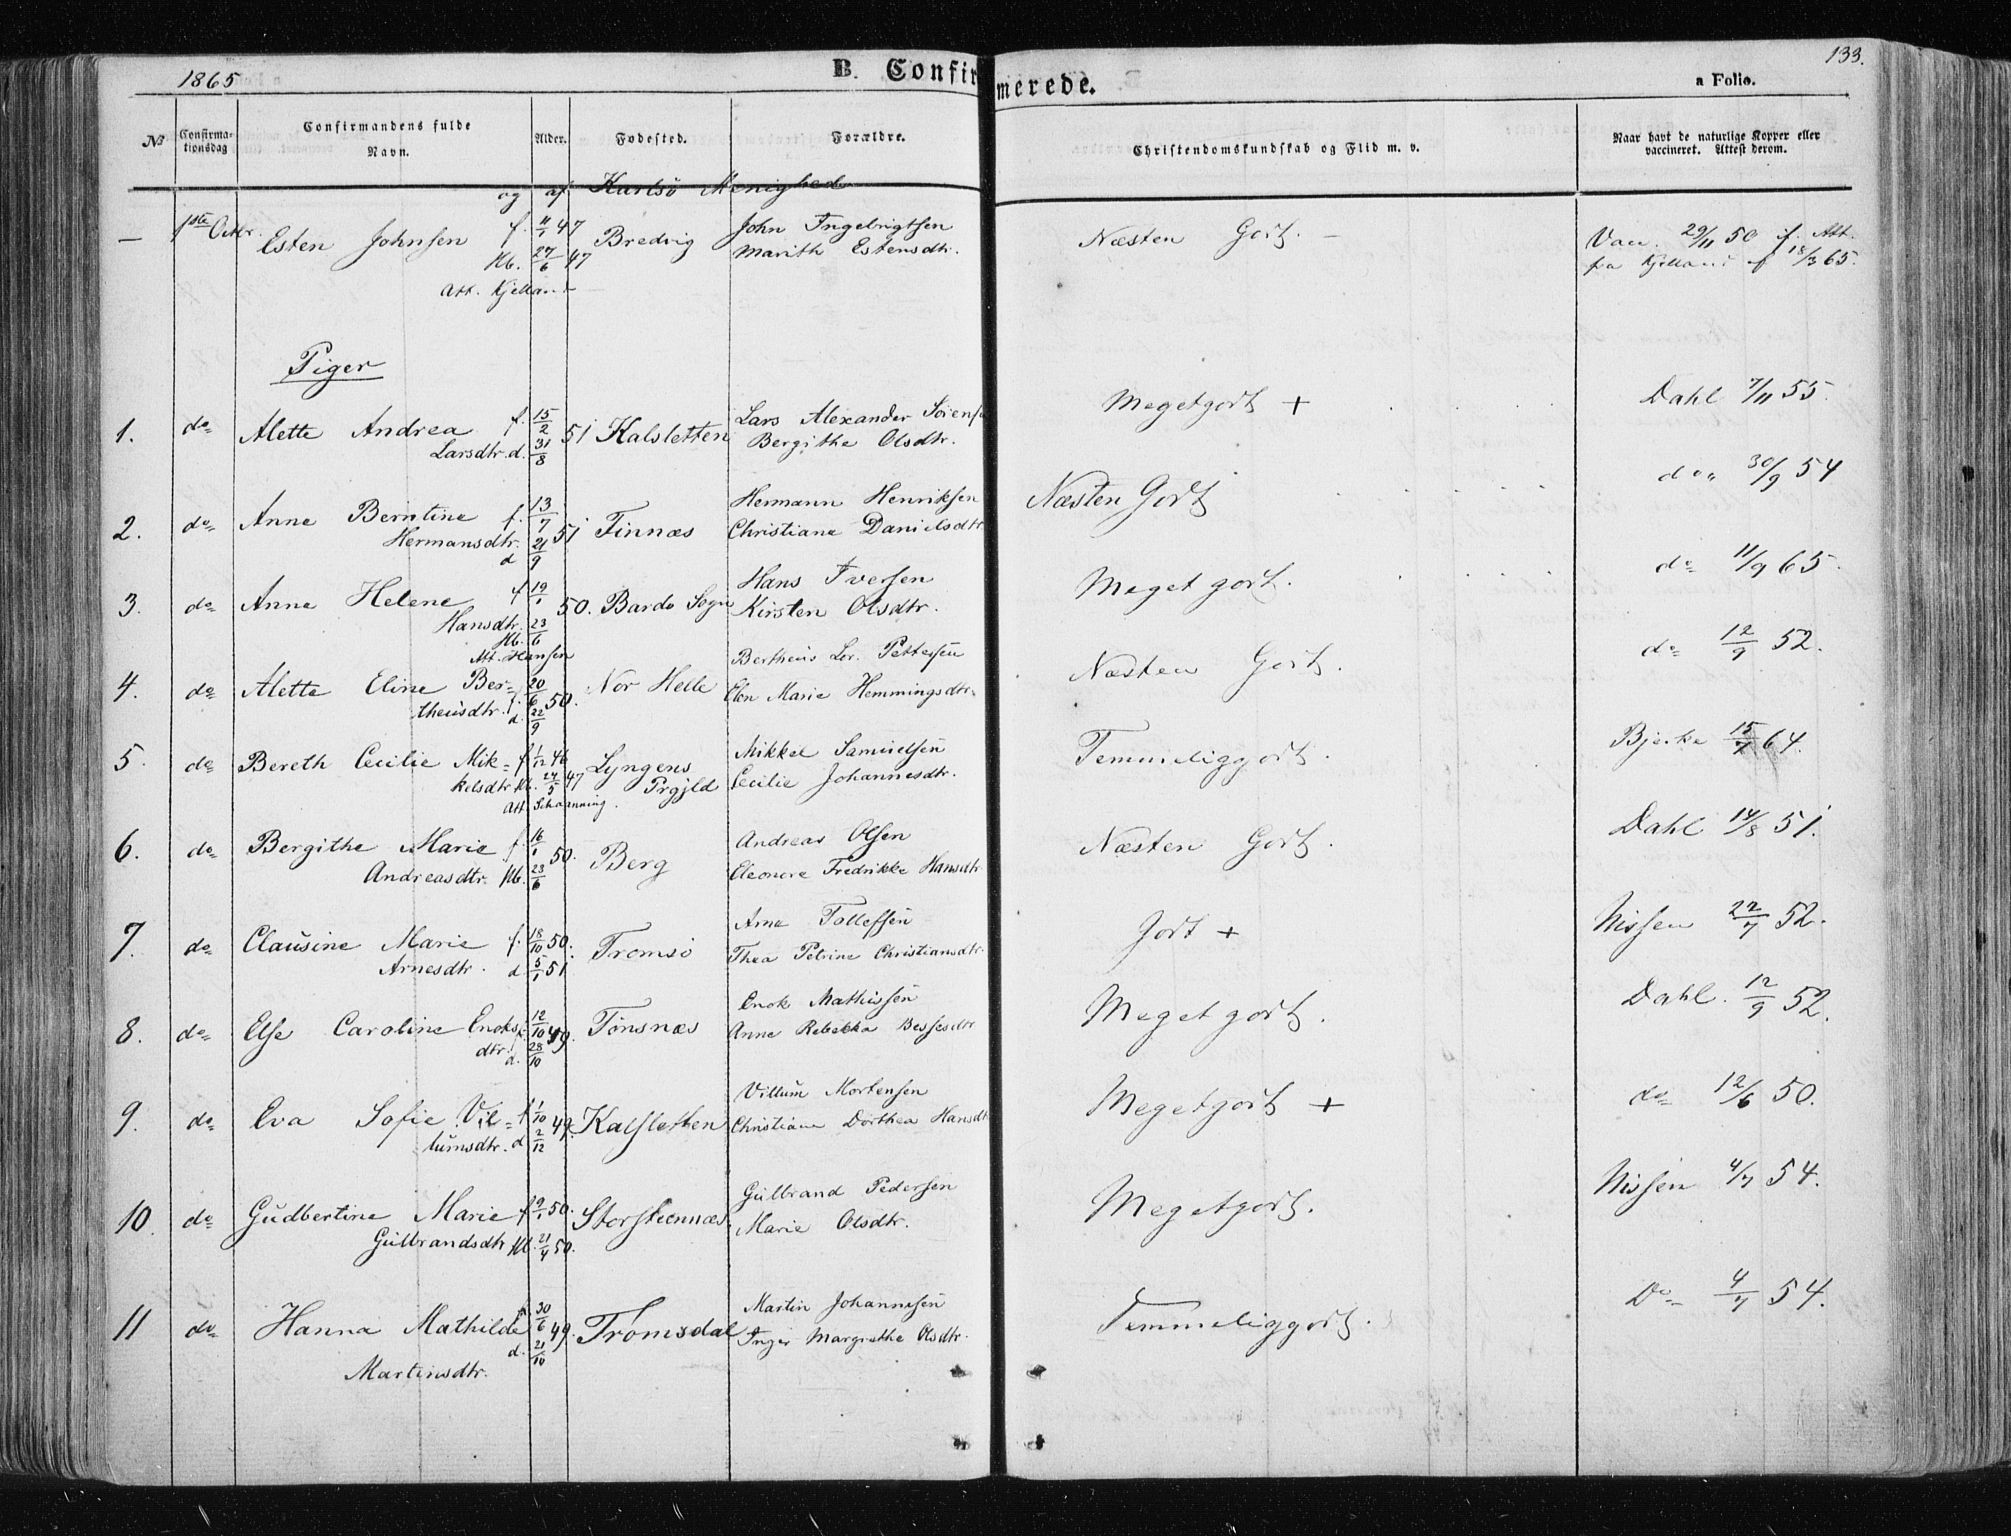 1865
B. Confirmerede.
133.
a Folio.
№
Confirma-
tionsdag
Confirmandens fulde
Navn.
Alder.
Fødested.
Forældre.
Christendomskundskab og Flid m. v.
Naar havt de naturlige Kopper eller
vaccineret. Attest derom.
og af Karlsö Menighed
— 1ste Octbr. Esten Johnsen f. 11/1 47 Bredvig John Ingebrigtsen Næsten Godt. — Vacc. 29/11 50 if. Att.
Hb. 27/6 47 Marith Estensdtr. fra Kjelland af 18/3 65.
Att. Kjelland
Piger
1. do Alette Andrea f. 15/2 51 Kalsletten Lars Alexander Sörensen Megetgodt + Dahl 7/11 55.
Larsdtr. d. 31/8 Bergithe Olsdtr.
2. do Anne Berntine f. 13/7 51 Finnæs Hermann Henriksen Næsten Godt do 30/9 54
Hermansdtr. d 21/9 Christiane Danielsdtr
3. do Anne Helene f 19/1 50. Bardo Sogn Hans Iversen Meget godt. do 11/9 65.
Hansdtr. Hb. 23/6 Kirsten Olsdtr.
Att. Hansen
4. do Alette Eline Ber- f. 20/6 50. Nor Helle Bertheus Lor. Pettersen Næsten Godt. do 12/9 52.
theusdtr. d. 22/9 Elen Marie Hemmingsdtr.
5. do Bereth Cecilie Mik- f 1/12 46 Lyngens Mikkel Samuelsen Temmeliggodt. Bjerke 15/7 64.
kelsdtr Hb. 24/5 47 Prgjld Cecilie Johannesdtr.
Att. Schaanning.
6. do Bergithe Marie f. 16/1 50. Berg Andreas Olsen Næsten Godt. Dahl 14/8 51.
Andreasdtr. Hb. 23/6 Eleonore Fredrikke Hansdtr
7. do Clausine Marie f. 18/10 50. Tromsö Arne Tollefsen Godt + Nissen 22/7 52.
Arnesdtr. d. 5/1 51 Thea Petrine Christiansdtr.
8. do Else Caroline Enoks- f. 12/10 49. Tönsnæs Enok Mathisen Meget godt. Dahl. 12/9 52.
dtr. d. 28/10 Anne Rebekka Bessesdtr
9. do Eva Sofie Vil- f 1/10 49. Kalsletten Villum Mortensen Megetgodt + do 12/6 50.
lumsdtr. d 2/12 Christiane Dorthea Hansdtr
10. do Gudbertine Marie f 9/1 50. Storsteennæs. Gulbrand Pedersen Megetgodt. Nissen 4/7 54.
Gulbrandsdtr Hb. 21/4 50. Marie Olsdtr.
11 do Hanna Mathilde f. 30/6 49. Tromsdal Martin Johannesen Temmeliggodt. Do 4/7 54.
d. 21/10 Inger Margrethe Olsdtr.
Martinsdtr.